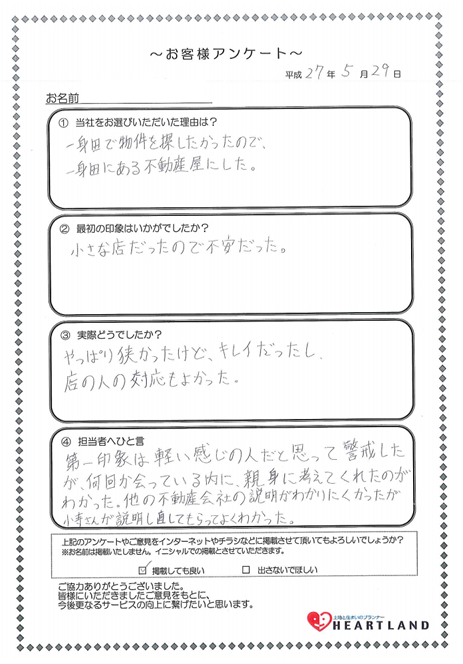 ～お客様アンケート～
平成 27 年 5 月 29 日
お名前
① 当社をお選びいただいた理由は？
一身田で物件を探したかったので、
一身田にある不動産屋にした。
② 最初の印象はいかがでしたか？
小さな店だったので不安だった。
③ 実際どうでしたか？
やっぱり狭かったけど、キレイだったし、
店の人の対応もよかった。
④ 担当者へひと言
第一印象は軽い感じの人だと思って警戒した
が、何回か会っている内に、親身に考えてくれたのが
わかった。他の不動産会社の説明がわかりにくかったが
小寺さんが説明し直してもらってよくわかった。
上記のアンケートやご意見をインターネットやチラシなどに掲載させて頂いてもよろしいでしょうか？
※お名前は掲載いたしません。イニシャルでの掲載とさせていただきます。
☑ 掲載しても良い □ 出さないでほしい
ご協力ありがとうございました。
皆様にいただきましたご意見をもとに、
今後更なるサービスの向上に繋げたいと思います。
土地と住まいのプランナー
HEARTLAND